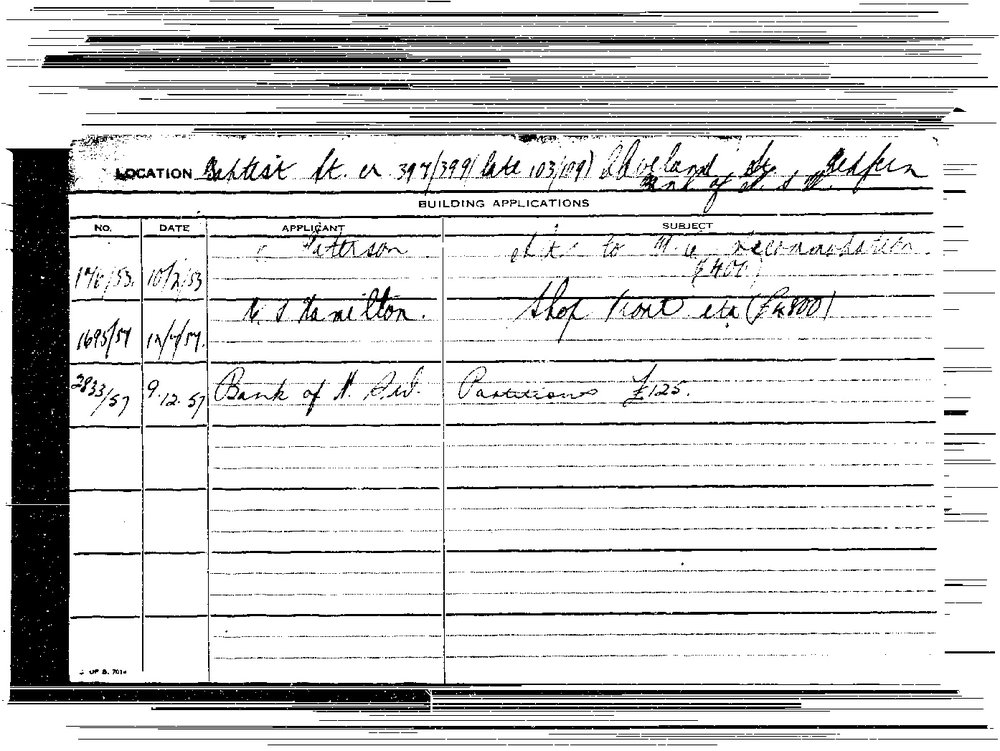 LOCATION Baptist St. cr 397/399 (late 103/109) Cleveland St Redfern
Bank of N. S. W.
BUILDING APPLICATIONS
NO. DATE APPLICANT SUBJECT
Paterson to accommodation
/53. 10/2/53 £400)
Hamilton. Shop Front etc (£4800)
1695/57 12/7/57.
2833/57 9.12.57 Bank of N. S.W. Partitions £125.
OF S.